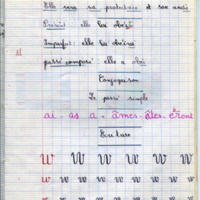 Elle sera sa protectrice et son amie
Présent : elle lui obéit
Imparfait : elle lui obéira
passé composé : elle a
Conjugaison
Le passé simple
ai - as a - âmes - âtes - èrent
Ecriture
W W W W W W
w w w w w w
w w w w w w